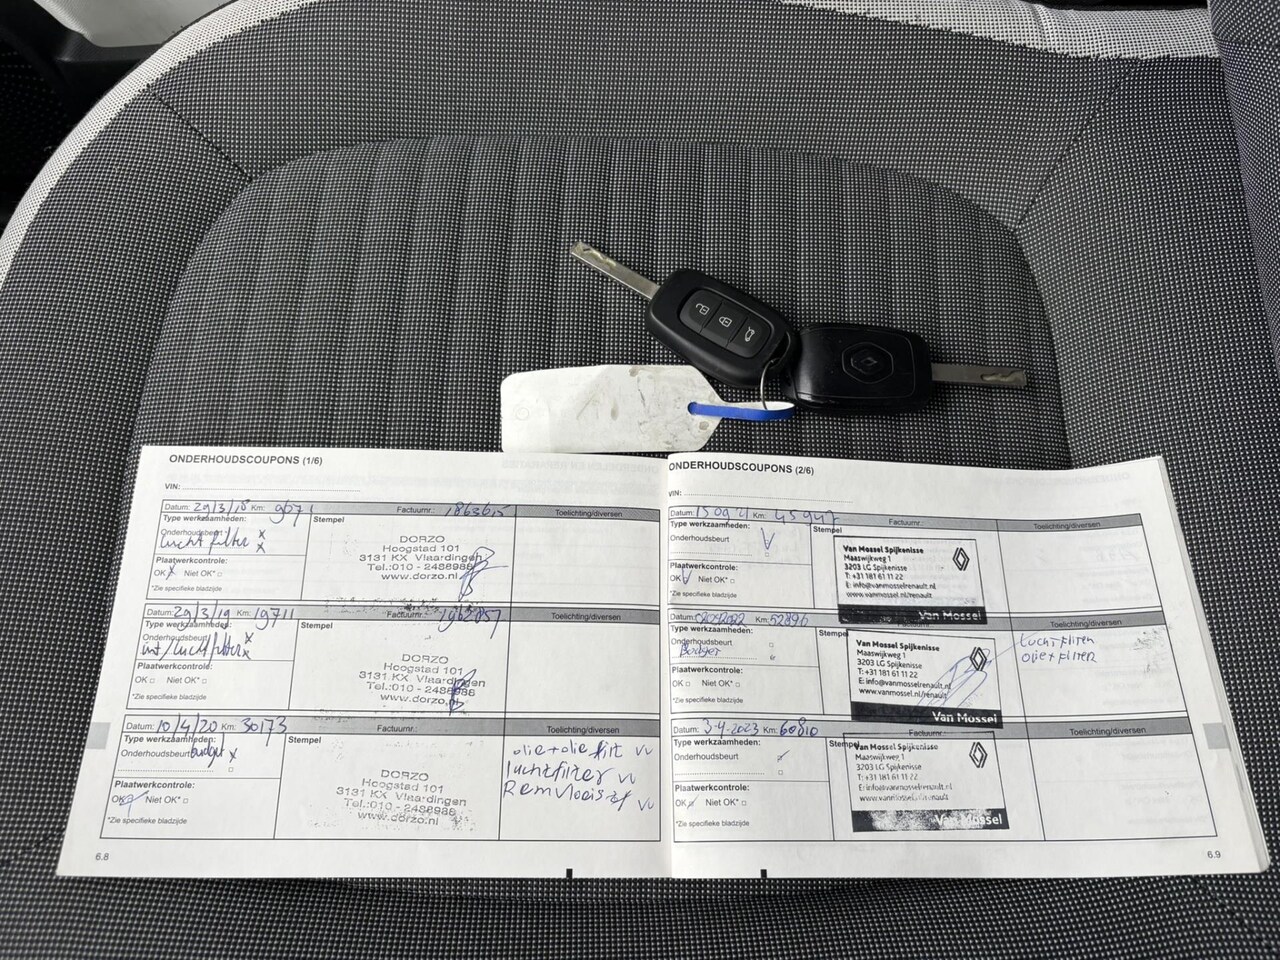 ONDERHOUDSCOUPONS (1/6)
VIN:
Datum: 29/3/18 Km: 9671 Factuurnr.: 1863615 Toelichting/diversen
Type werkzaamheden: Stempel
Onderhoudsbeurt x
Lucht filter x
Plaatwerkcontrole:
OK Niet OK*
*Zie specifieke bladzijde
DORZO
Hoogstad 101
3131 KX Vlaardingen
Tel.:010 - 2488988
www.dorzo.nl
Datum: 29/3/19 Km: 19711 Factuurnr.: Toelichting/diversen
Type werkzaamheden: Stempel
Onderhoudsbeurt x
int/Luchtfilter x
Plaatwerkcontrole:
OK Niet OK*
*Zie specifieke bladzijde
DORZO
Hoogstad 101
3131 KX Vlaardingen
Tel.:010 - 2488988
www.dorzo.nl
Datum: 10/4/20 Km: 30173 Factuurnr.: Toelichting/diversen
Type werkzaamheden: Stempel
Onderhoudsbeurt budget x
Plaatwerkcontrole:
OK Niet OK*
*Zie specifieke bladzijde
DORZO
Hoogstad 101
3131 KX Vlaardingen
Tel.:010 - 2488988
www.dorzo.nl
olie+olie filt vv
luchtfilter vv
Remvloeistof vv
6.8
ONDERHOUDSCOUPONS (2/6)
VIN:
Datum: Km: 45947 Factuurnr.: Toelichting/diversen
Type werkzaamheden: Stempel
Onderhoudsbeurt
Plaatwerkcontrole:
OK Niet OK*
*Zie specifieke bladzijde
Van Mossel Spijkenisse
Maaswijkweg 1
3203 LG Spijkenisse
T: +31 181 61 11 22
E: info@vanmosselrenault.nl
www.vanmossel.nl/renault
Van Mossel
Datum: Km: 52896 Factuurnr.: Toelichting/diversen
Type werkzaamheden: Stempel
Onderhoudsbeurt
Budget
Plaatwerkcontrole:
OK Niet OK*
*Zie specifieke bladzijde
Van Mossel Spijkenisse
Maaswijkweg 1
3203 LG Spijkenisse
T: +31 181 61 11 22
E: info@vanmosselrenault.nl
www.vanmossel.nl/renault
Van Mossel
Luchtfilter
olie+filter
Datum: 3-4-2023 Km: 60810 Factuurnr.: Toelichting/diversen
Type werkzaamheden: Stempel
Onderhoudsbeurt
Plaatwerkcontrole:
OK Niet OK*
*Zie specifieke bladzijde
Van Mossel Spijkenisse
Maaswijkweg 1
3203 LG Spijkenisse
T: +31 181 61 11 22
E: info@vanmosselrenault.nl
www.vanmossel.nl/renault
Van Mossel
6.9